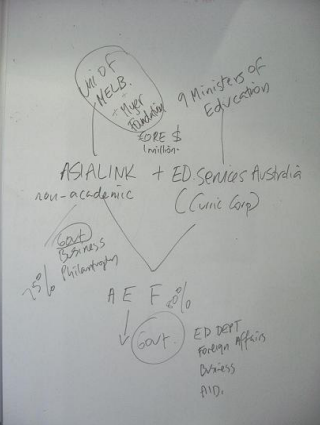 Uni of
MELB.
+ Myer
Foundation
CORE $
1 million
9 Ministers of
Education
ASIALINK + ED Services Australia
non-academic (Curric Corp)
Govt
Business
Philanthropy
75%
A E F 20%
Govt.
ED DEPT
Foreign Affairs
Business
AID.